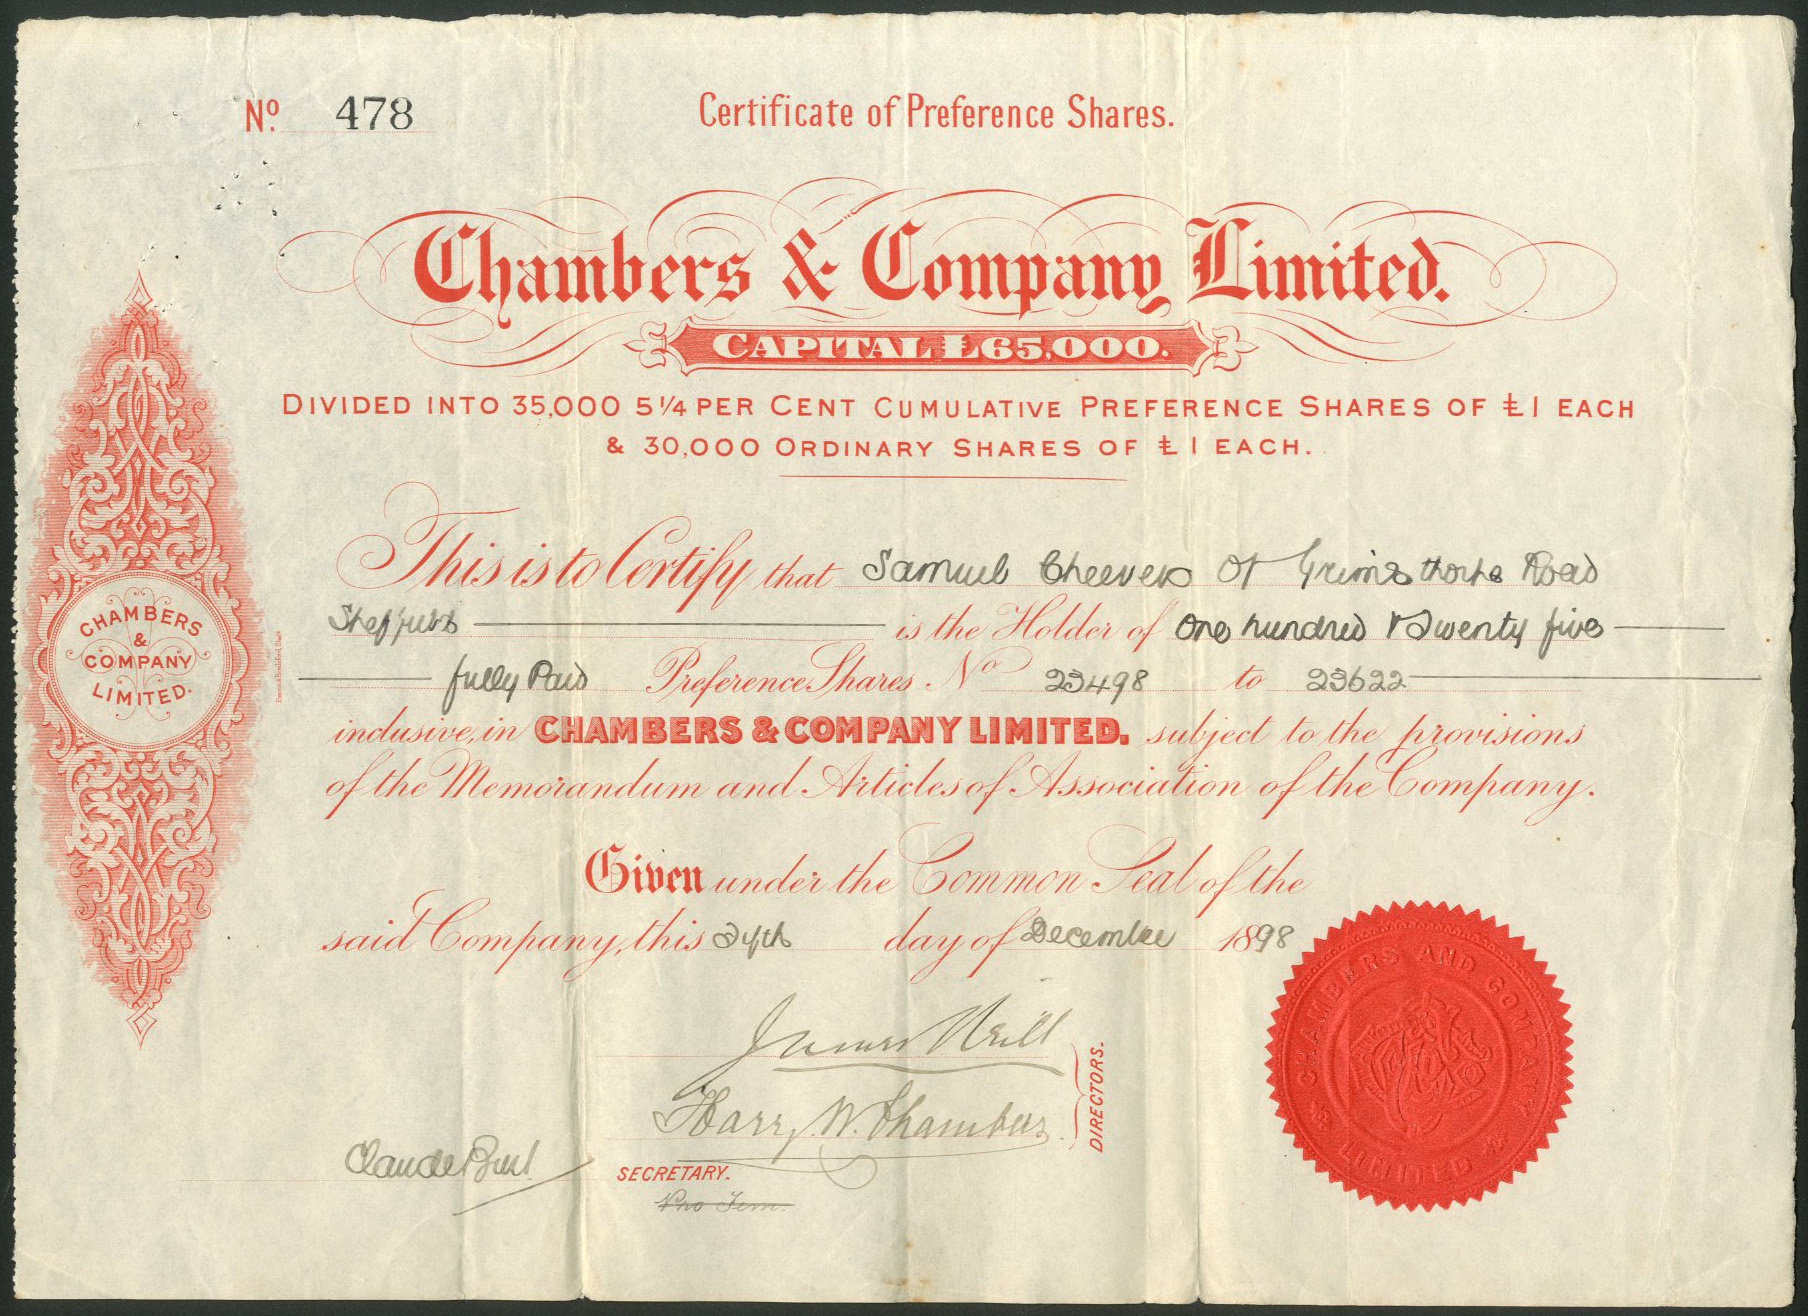 No. 478
Certificate of Preference Shares.
Chambers & Company Limited.
CAPITAL £65,000.
DIVIDED INTO 35,000 5 1/4 PER CENT CUMULATIVE PREFERENCE SHARES OF £1 EACH
& 30,000 ORDINARY SHARES OF £1 EACH.
This is to Certify that Samuel Cheever of Grimsthorpe Road
Sheffield is the Holder of One hundred & Twenty five
fully Paid Preference Shares No 23498 to 23622
inclusive, in CHAMBERS & COMPANY LIMITED. subject to the provisions
of the Memorandum and Articles of Association of the Company.
Given under the Common Seal of the
said Company, this day of December 1898
James Neill
Harry W. Chambers
DIRECTORS.
Claude
SECRETARY.
Pro Tem.
CHAMBERS
&
COMPANY
LIMITED.
CHAMBERS AND COMPANY
LIMITED